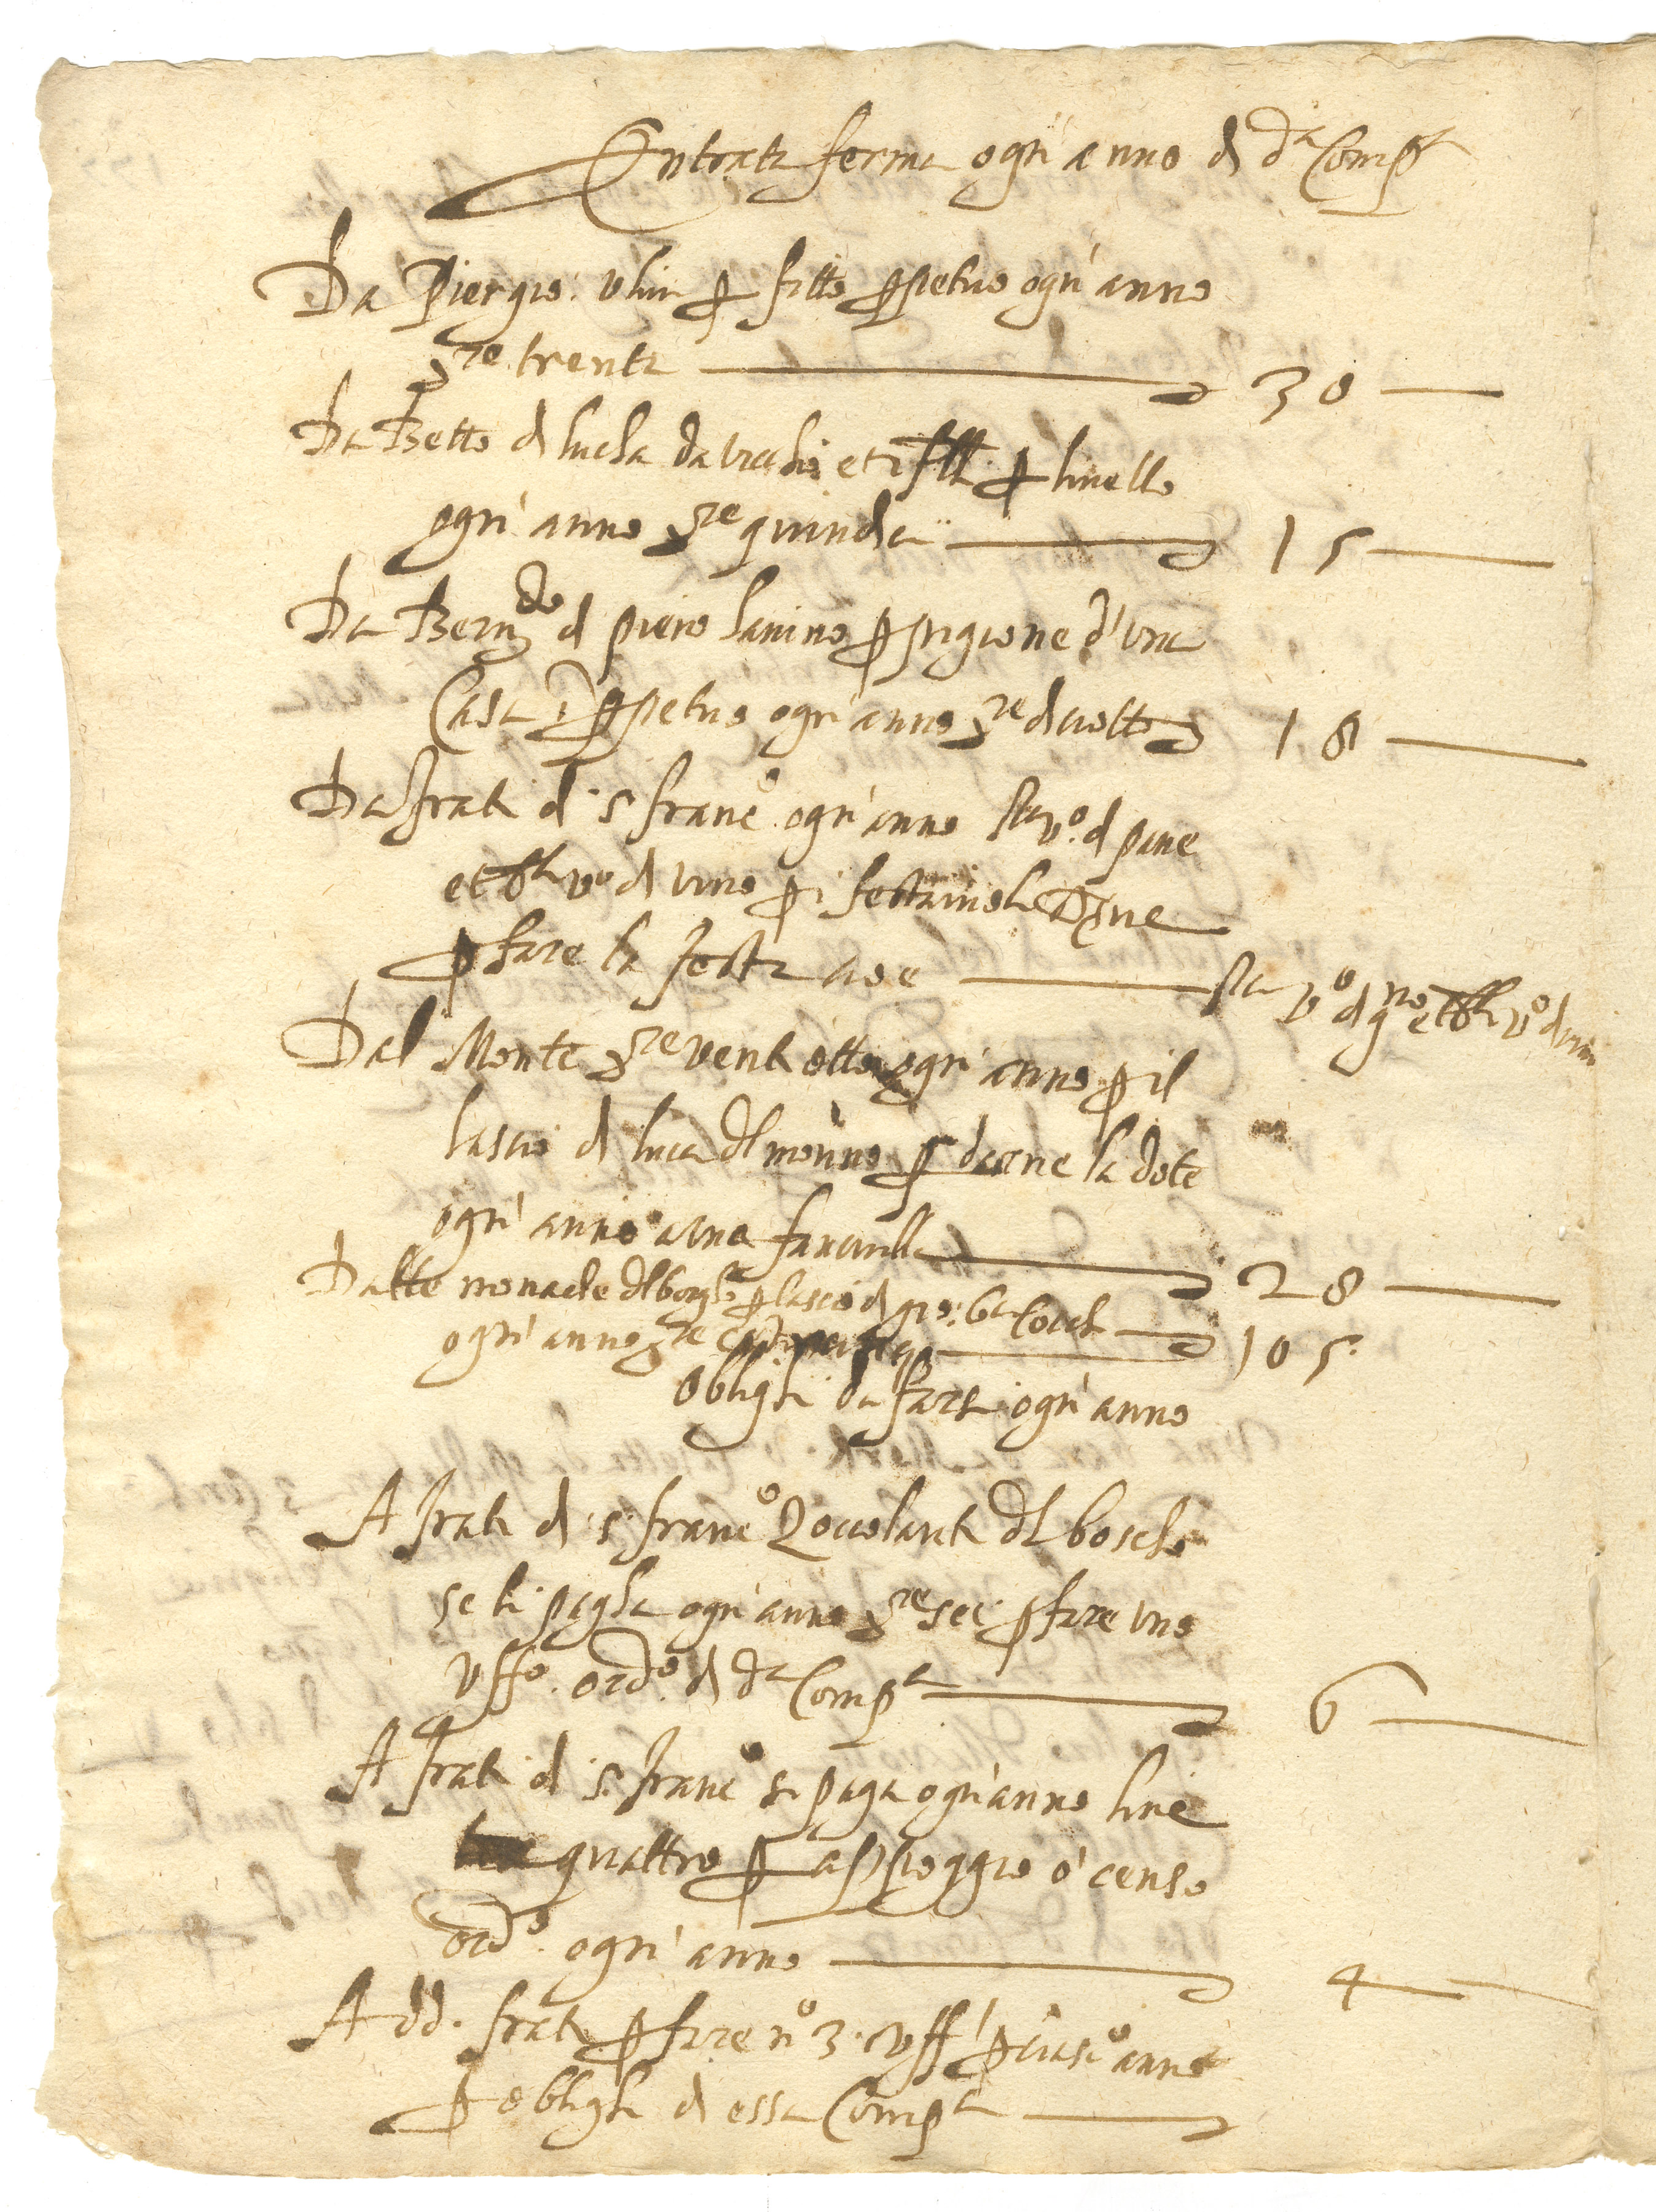 Entrata ferma ogn'anno di d.a Comp.a
Da Piergio: p fitto ppetuo ogn'anno
trenta 30
Da Betto di lucha da et p livello
ogni anno quindici 15
Da Bern.do di piero lanino p pigione d'una
Casa ī ppetuo ogn'anno diciotto 18
Da frati di S. franc.o ogn'anno sta v.o di pane
et v.o di vino p i festaiuoli
p fare la festa cioe sta v.o di g.no et v.o di vin
Dal Monte venti otto ogni anno p il
lascio di luca dl p darne la dote
ogni anno a una fanciulla 28
Dalle monache dl borgho p lascio di gio: ba
ogni anno 105.
Oblighi da farsi ogn'anno
A frati di S. franc.o Zoccolanti dl boscho
se li pagha ogn'anno sei p fare uno
uff.o ord.o di d.a Comp.a 6
A frati di S. franc.o si paga ogn'anno lire
quattro p appoggio ò censo
ord.o ogni anno 4
A dd. frati p fare n.o 3. uff.i p ciasc.o anno
p oblighi di essa Comp.a